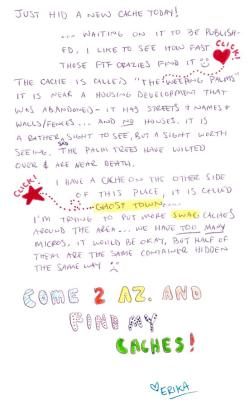 JUST HID A NEW CACHE TODAY!
... WAITING ON IT TO BE PUBLISH-
ED. I LIKE TO SEE HOW FAST
THOSE FTF CRAZIES FIND IT
CLICK!
THE CACHE IS CALLED "THE WEEPING PALMS"
IT IS NEAR A HOUSING DEVELOPMENT THAT
WAS ABANDONED - IT HAS STREETS & NAMES &
WALLS/FENCES... AND NO HOUSES. IT IS
A RATHER SAD SIGHT TO SEE, BUT A SIGHT WORTH
SEEING. THE PALM TREES HAVE WILTED
OVER & ARE NEAR DEATH.
CLICK!
I HAVE A CACHE ON THE OTHER SIDE
OF THIS PLACE, IT IS CALLED
GHOST TOWN....
I'M TRYING TO PUT MORE SWAG CACHES
AROUND THE AREA... WE HAVE TOO MANY
MICROS. IT WOULD BE OKAY, BUT HALF OF
THEM ARE THE SAME CONTAINER HIDDEN
THE SAME WAY
COME 2 AZ. AND
FIND MY
CACHES!
ERIKA